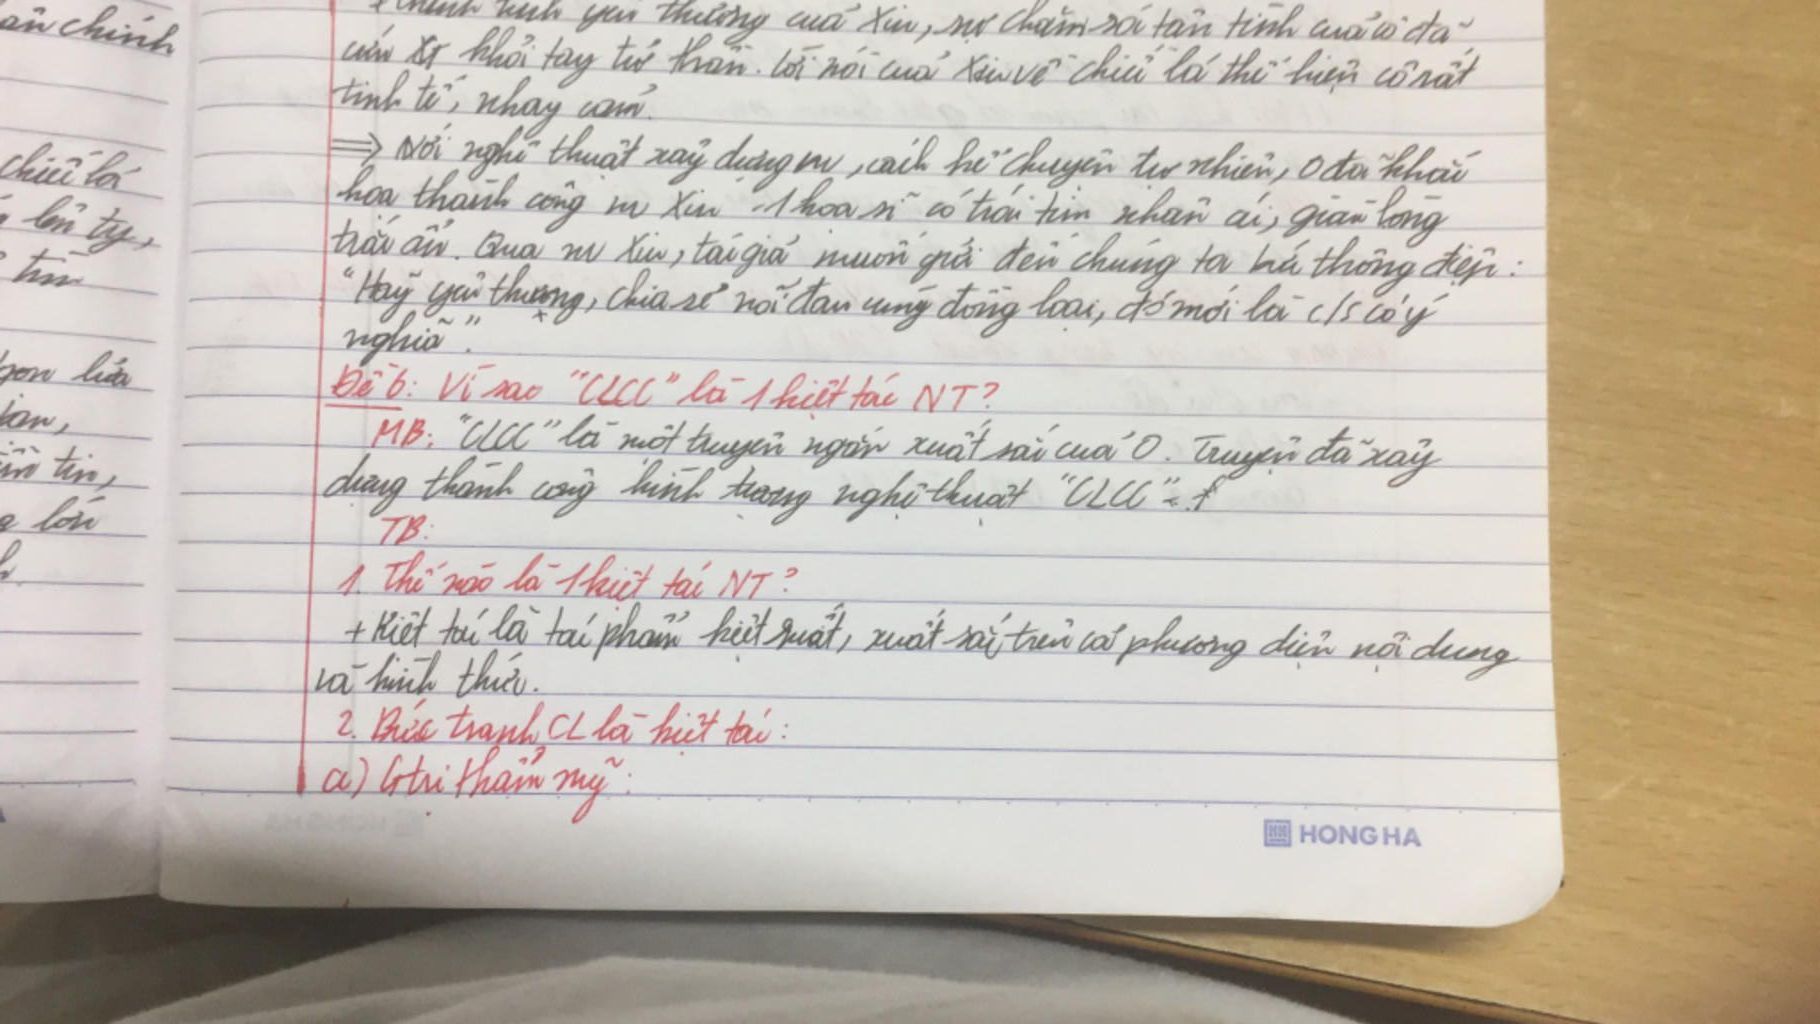 ân chính
chiếc lá
lên tỷ,
tìn
gọn lửa
tin,
lớn
h
yêu thương của Xiu, sự chăm sóc tận tình của cô đã
cứu X khỏi tay tử thần. Lời nói của Xiu về chiếc lá thể hiện cô rất
tinh tế, nhạy cảm.
⇒ Với nghệ thuật xây dựng nv, cách kể chuyện tự nhiên, O đã khắc
họa thành công nv Xiu - 1 họa sĩ có trái tim nhân ái, giàu lòng
trắc ẩn. Qua nv Xiu, tác giả muốn gửi đến chúng ta thông điệp:
"Hãy yêu thương, chia sẻ nỗi đau cùng đồng loại, đó mới là c/s có ý
nghĩa".
Đề 6: Vì sao "CLCC" là 1 kiệt tác NT?
MB: "CLCC" là một truyện ngắn xuất sắc của O. Truyện đã xây
dựng thành công hình tượng nghệ thuật "CLCC"
TB:
1. Thế nào là 1 kiệt tác NT?
+ Kiệt tác là tác phẩm kiệt xuất, xuất sắc trên cả phương diện nội dung
và hình thức.
2. Bức tranh CL là kiệt tác:
a) Gtrị thẩm mỹ:
HONG HA